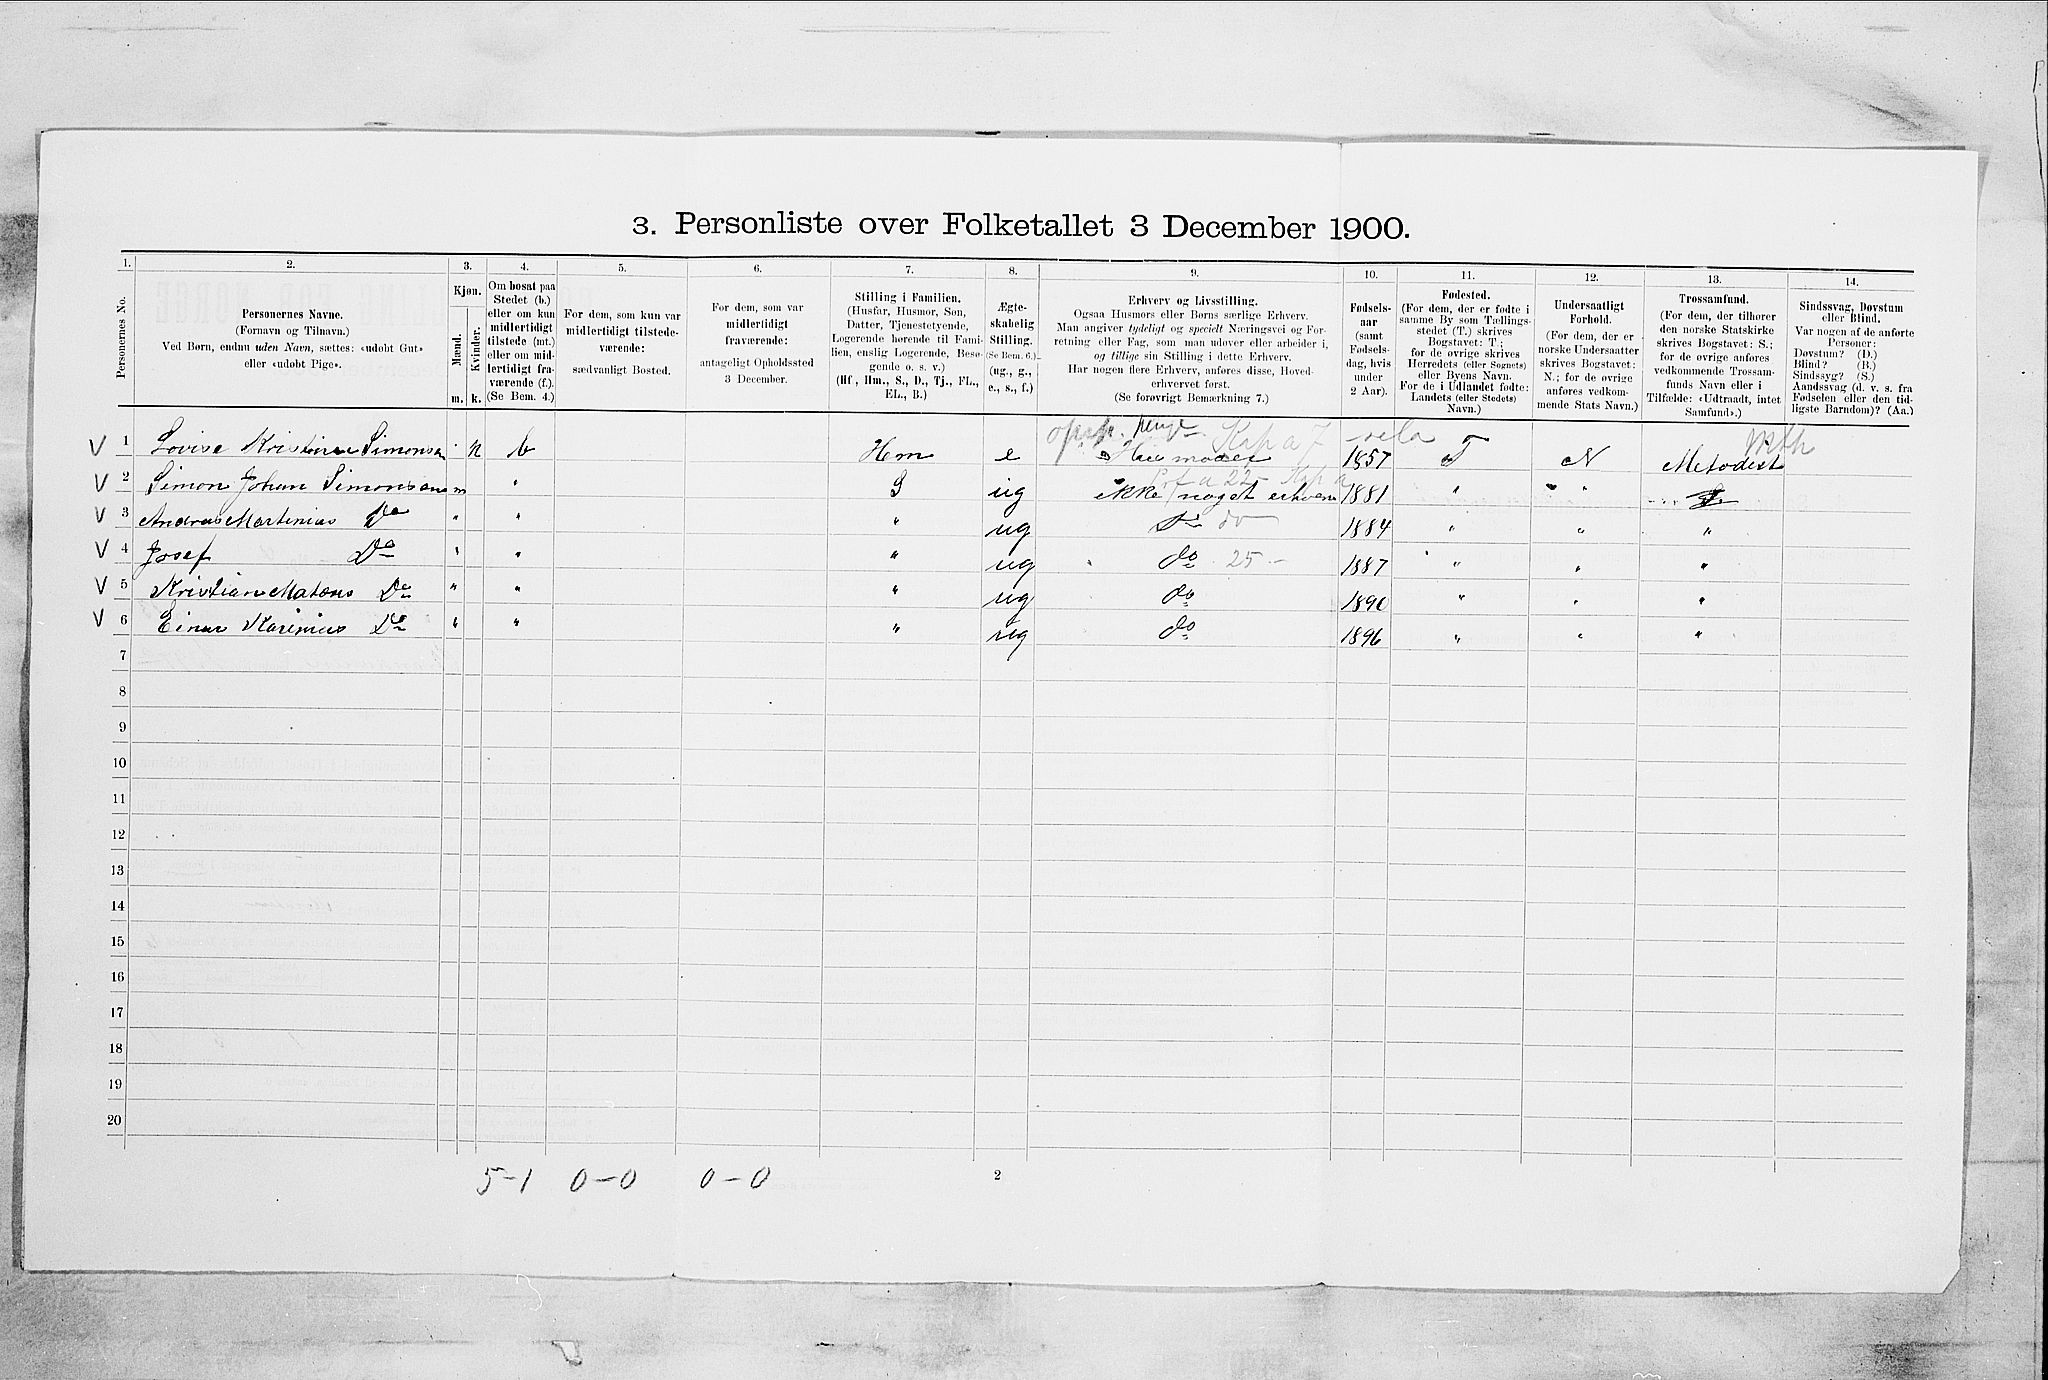 3. Personliste over Folketallet 3 December 1900.
1. 2. 3. 4. 5. 6. 7. 8. 9. 10. 11. 12. 13. 14.
Personernes No.
Personernes Navne.
(Fornavn og Tilnavn.)
Ved Børn, endnu uden Navn, sættes: «udøbt Gut»
eller «udøbt Pige».
Kjøn.
Mænd.
Kvinder.
m. k.
Om bosat paa
Stedet (b.)
eller om kun
midlertidigt
tilstede (mt.)
eller om mid-
lertidigt fra-
værende (f.).
(Se Bem. 4.)
For dem, som kun var
midlertidigt tilstede-
værende:
sædvanligt Bosted.
For dem, som var
midlertidigt
fraværende:
antageligt Opholdssted
3 December.
Stilling i Familien.
(Husfar, Husmor, Søn,
Datter, Tjenestetyende,
Logerende hørende til Fami-
lien, enslig Logerende, Besø-
gende o. s. v.)
(Hf., Hm., S., D., Tj., FL.,
EL., B.)
Ægte-
skabelig
Stilling.
(Se Bem. 6.)
(ug., g.,
e., s., f.)
Erhverv og Livsstilling.
Ogsaa Husmors eller Børns særlige Erhverv.
Man angiver tydeligt og specielt Næringsvei og For-
retning eller Fag, som man udover eller arbeider i,
og tillige sin Stilling i dette Erhverv.
Har nogen flere Erhverv, anføres disse, Hoved-
erhvervet først.
(Se forøvrigt Bemærkning 7.)
Fødsels-
aar
(samt
Fødsels-
dag, hvis
under
2 Aar).
Fødested.
(For dem, der er fødte i
samme By som Tællings-
stedet (T.) skrives
Bogstavet: T.;
for de øvrige skrives
Herredets (eller Sognets)
eller Byens Navn.
For de i Udlandet fødte:
Landets (eller Stedets)
Navn.)
Undersaatligt
Forhold.
(For dem, der er
norske Undersaatter
skrives Bogstavet:
N.; for de øvrige
anføres vedkom-
mende Stats Navn.)
Trossamfund.
(For dem, der tilhører
den norske Statskirke
skrives Bogstavet: S.;
for de øvrige anføres
vedkommende Trossam-
funds Navn eller i
Tilfælde: «Udtraadt, intet
Samfund».)
Sindssvag, Døvstum
eller Blind.
Var nogen af de anførte
Personer:
Døvstum? (D.)
Blind? (B.)
Sindssyg? (S.)
Aandssvag (d. v. s. fra
Fødselen eller den tid-
ligste Barndom)? (Aa.)
V 1 Lovise Kristine Simonsen k b Hm e Husmoder 1857 T N Metodist
V 2 Simon Johan Simonsen m " S ug ikke noget erhverv 1881 " "
V 3 Andreas Martinius Do " " " ug do 1884 " " "
V 4 Josef Do " " " ug do 25 - 1887 " " "
V 5 Kristian Do " " " ug do 1890 " " "
V 6 Einar Do " " " ug do 1896 " " "
7
8
9
10
11
12
13
14
15
16
17
18
19
20
5-1 0-0 0-0
2